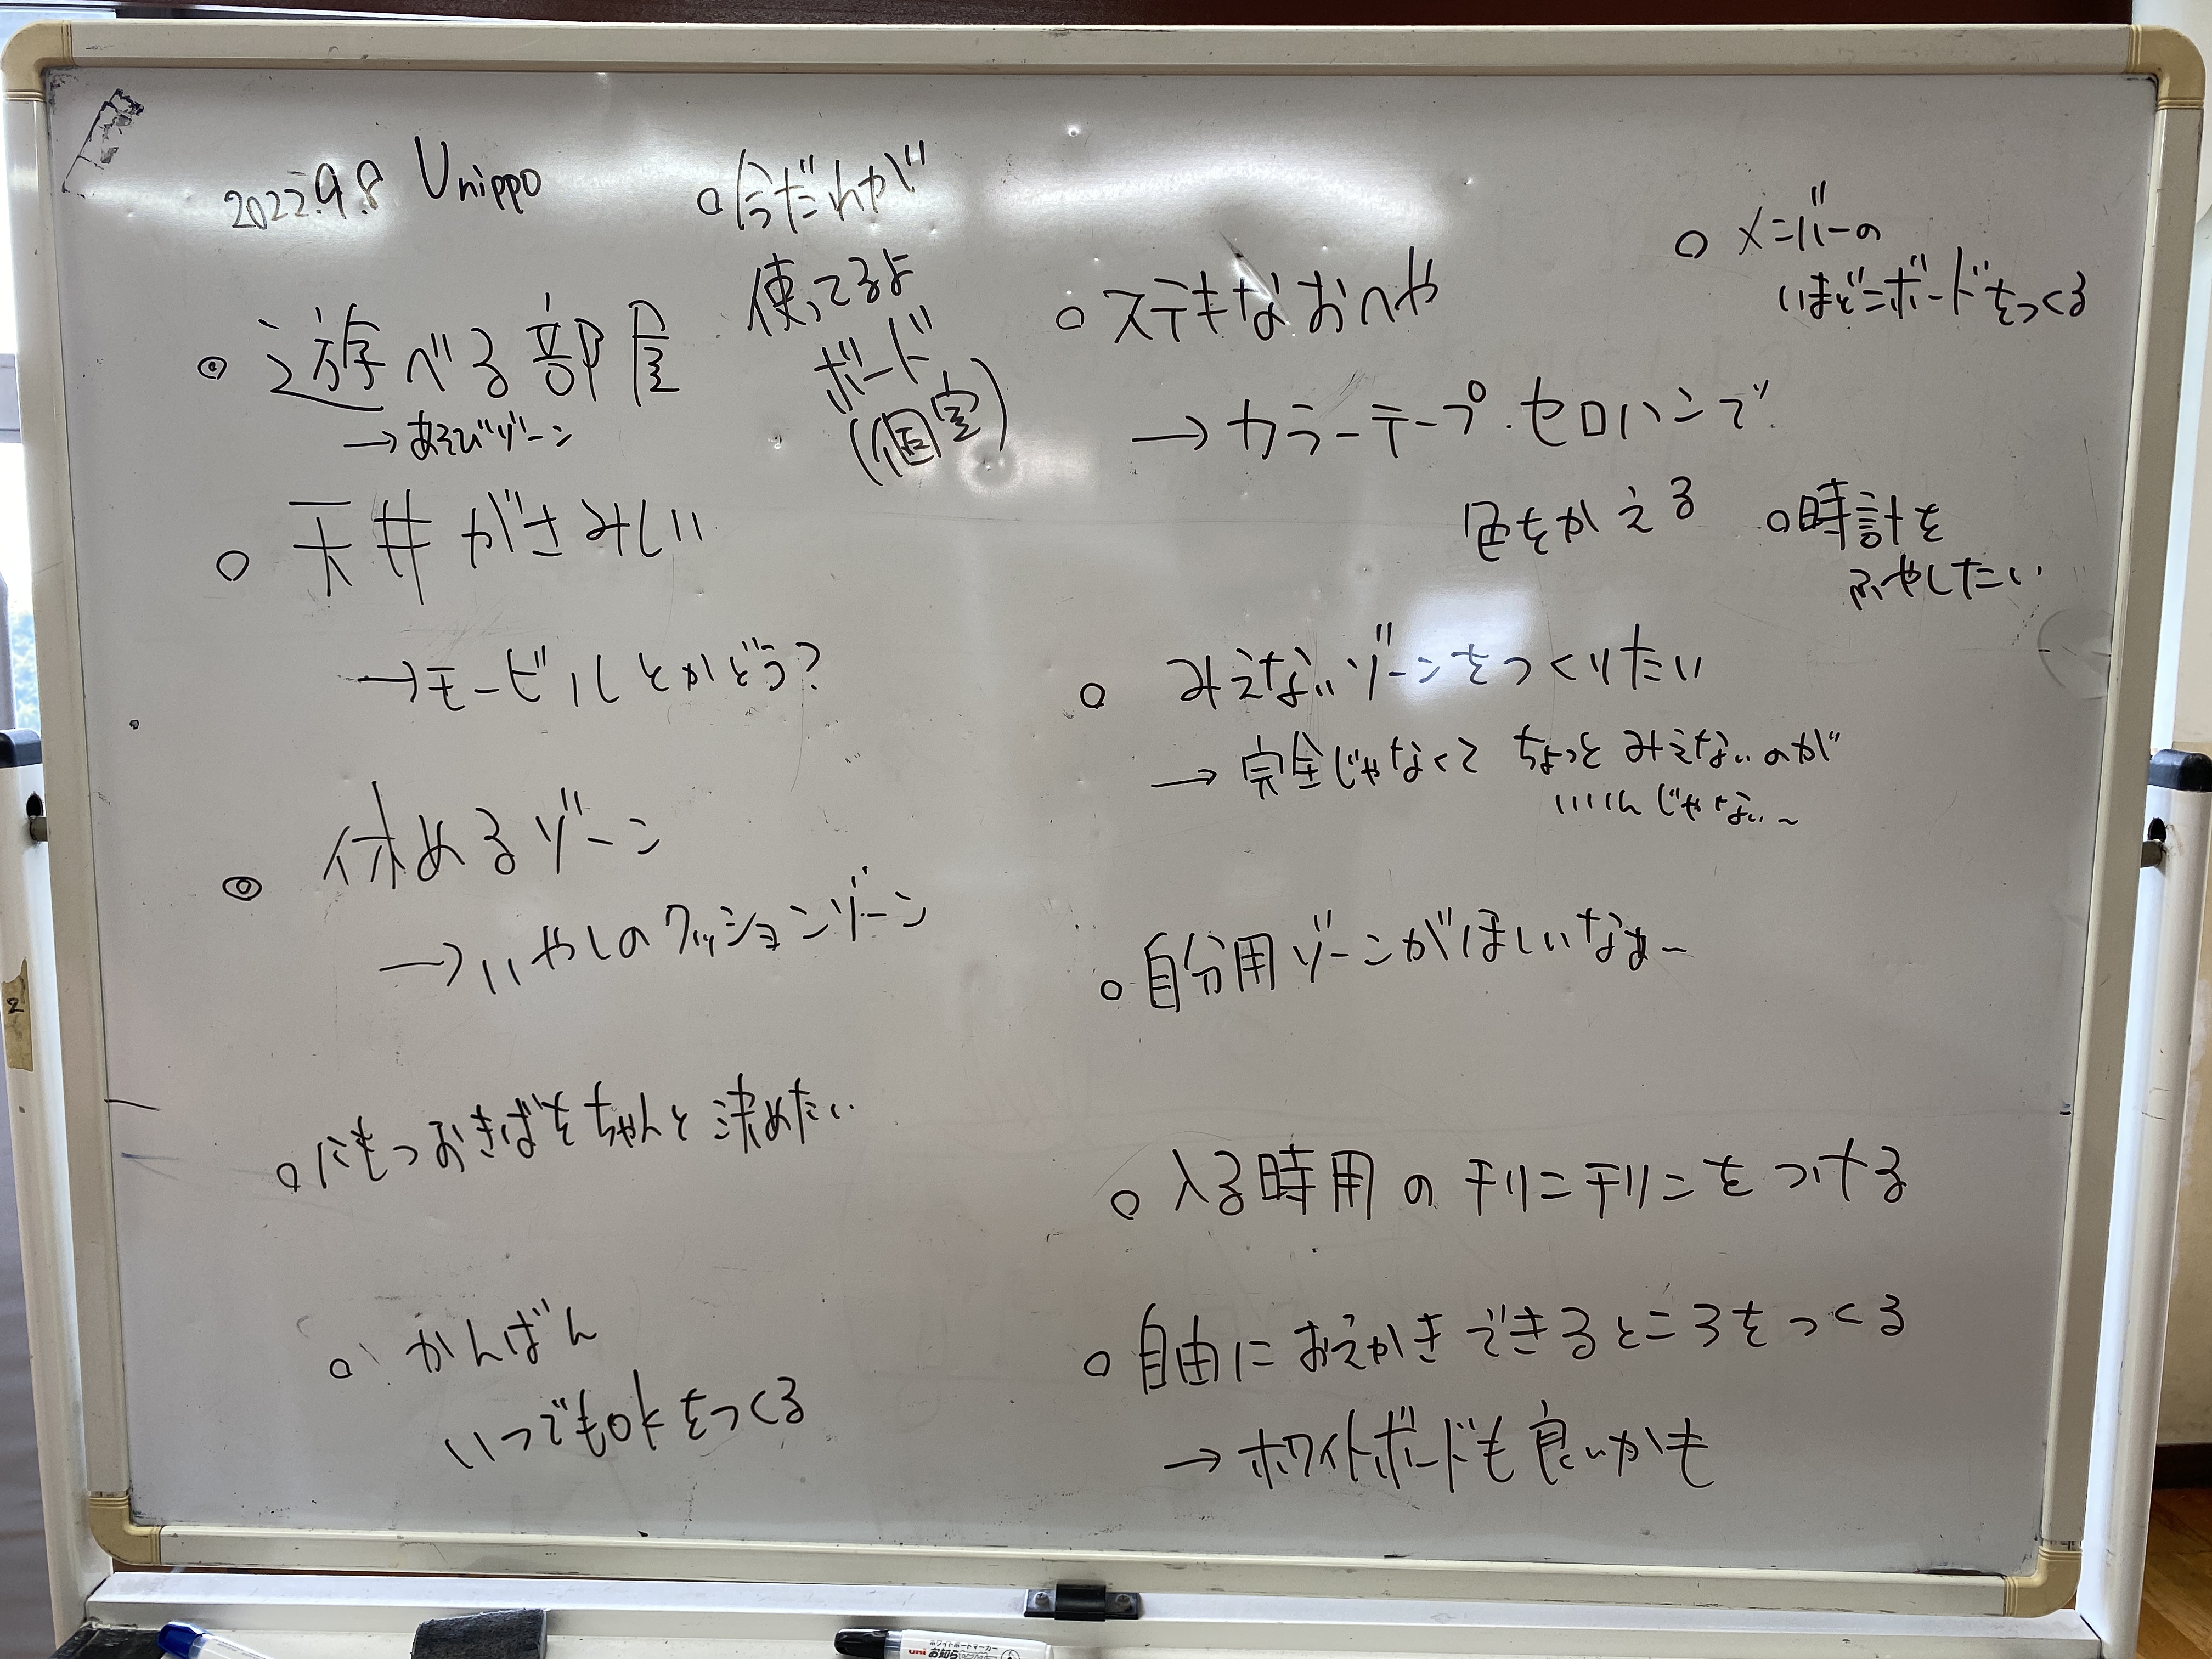 2022.9.8 Unippo
○今だれが
使ってるよ
ボード
(個室)
◎ 遊べる部屋
→あそびゾーン
○ 天井がさみしい
→モービルとかどう?
◎ 休めるゾーン
→いやしのクッションゾーン
○にもつおきばをちゃんと決めたい
○ かんばん
いつでもOKをつくる
○ ステキなおへや
→カラーテープ・セロハンで
色をかえる
○ メンバーの
いまどこボードをつくる
○時計を
ふやしたい
○ みえないゾーンをつくりたい
→ 完全じゃなくて ちょっと みえないのが
いいんじゃない~
○自分用ゾーンがほしいなぁー
○ 入る時用のチリンチリンをつける
○ 自由におえかきできるところをつくる
→ ホワイトボードも良いかも
2
ホワイトボードマーカー
uni
お知らせ